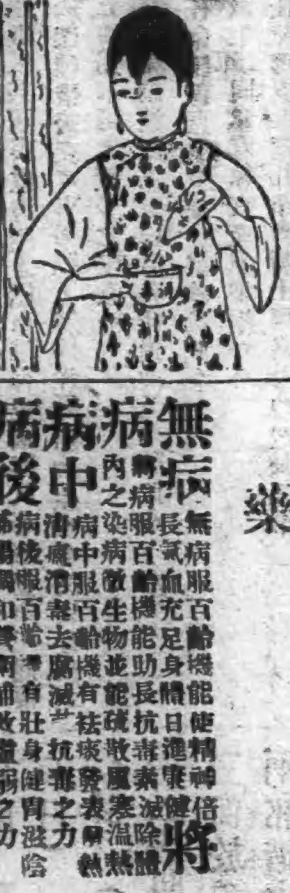 藥
無病
無病服百齡機能使精神倍
長氣血充足身體日進康健
將
病
將病服百齡機能助長抗毒素滅除體
內之染病微生物並能疏散風寒温熱
病中
病中服百齡機有袪痰發表解熱
清瘟消毒去腐滅 抗毒之力
病後
病後服百齡機有壯身健胃滋陰
補陽調和 補救虛弱之力